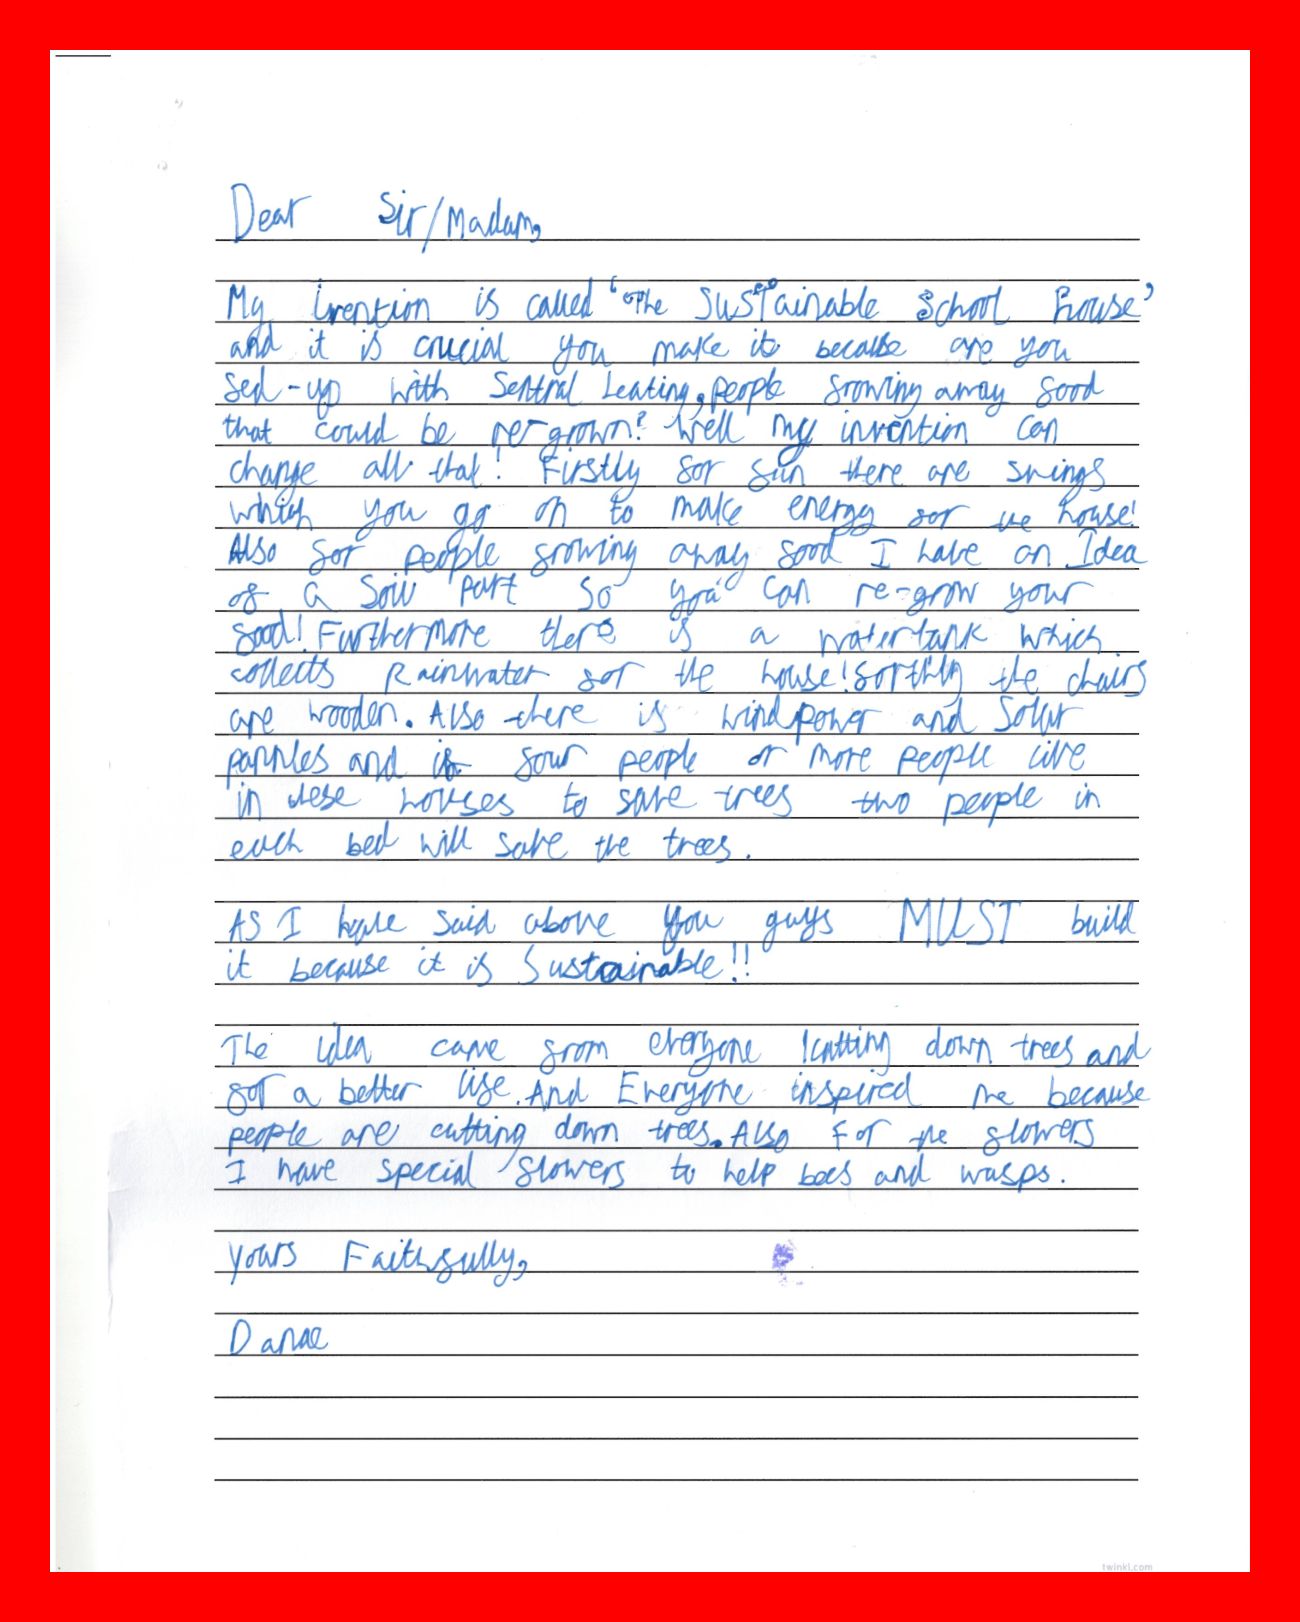 Dear Sir/Madam,
My invention is called 'The Sustainable School house'
and it is crucial you make it because are you
fed-up with Sentral Leating, people frowing away food
that could be re-grown? Well my invention can
change all that! Firstly for fun there are swings
which you go on to make energy for the house!
Also for people frowing away food I have an Idea
of a Soil part So you can re-grow your
food! Furthermore there is a watertank which
collects Rainwater for the house! forthly the chairs
are wooden. Also there is windpower and Solar
pannles and if four people or more people live
in these houses to save trees two people in
each bed will save the trees.
As I have said above you guys MUST build
it because it is Sustainable!!
The idea came from everyone cutting down trees and
for a better life. And Everyone inspired me because
people are cutting down trees. Also For the flowers
I have special flowers to help bees and wasps.
yours Faithfully,
Danae
twinkl.com